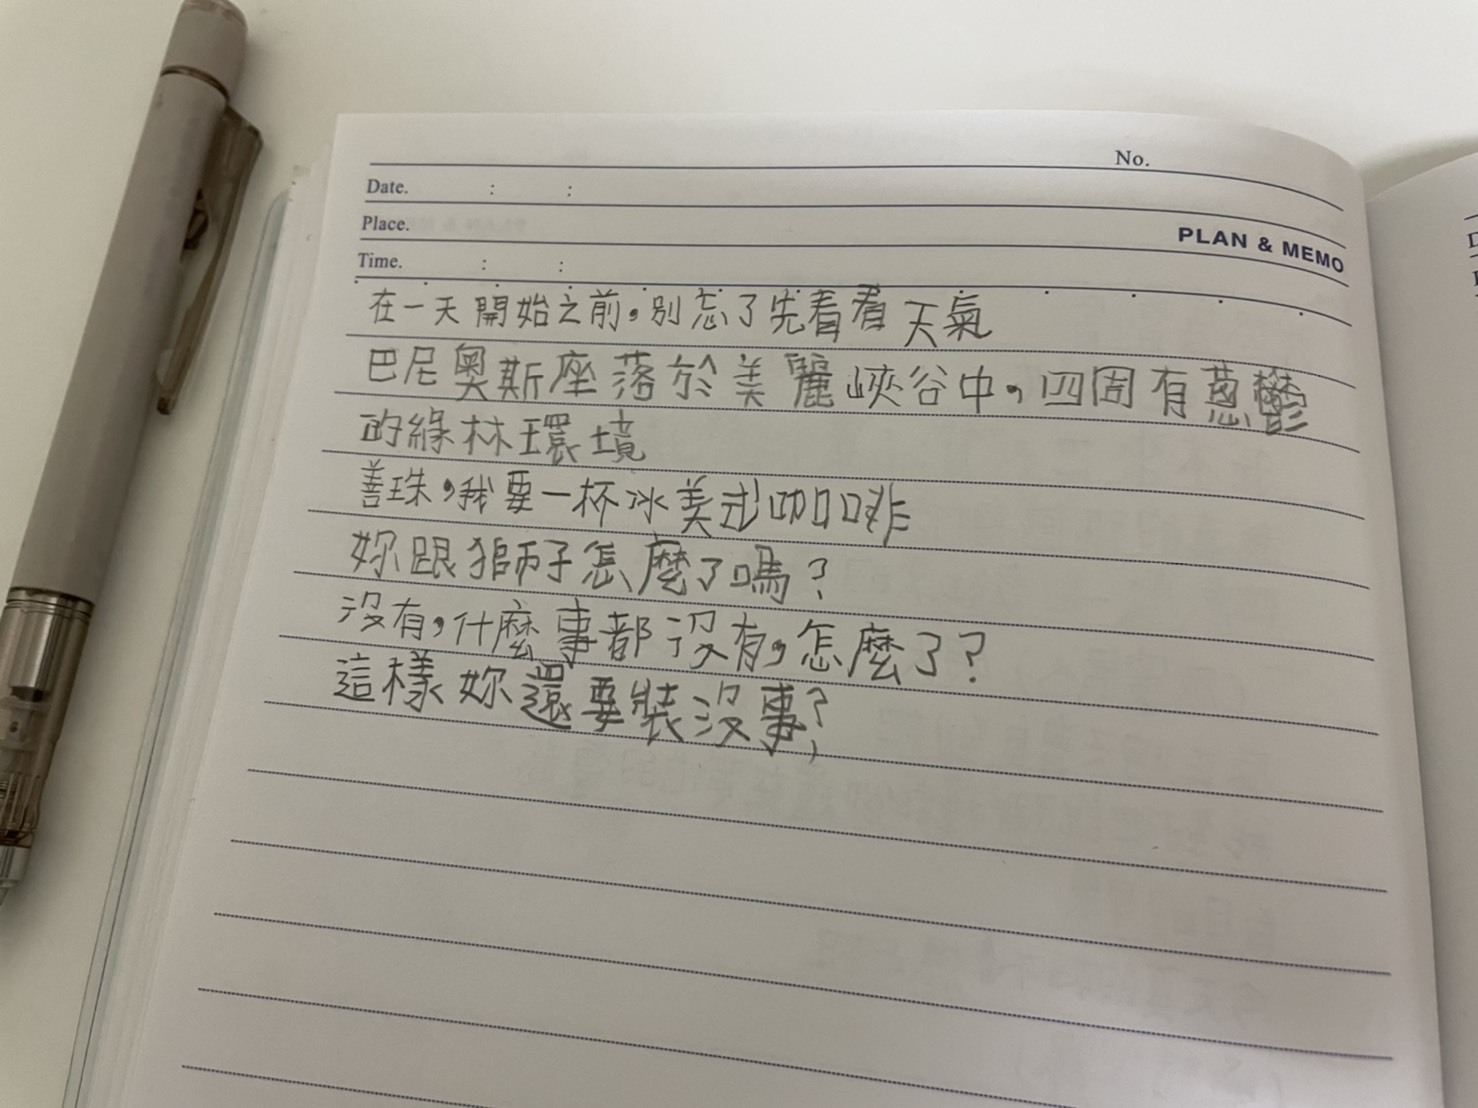 No.
Date. : :
Place.
PLAN & MEMO
Time. : :
在一天開始之前,別忘了先看看天氣
巴尼奧斯座落於美麗峽谷中,四周有蔥鬱
的綠林環境
善珠,我要一杯冰美式咖啡
妳跟獅子怎麼了嗎?
沒有,什麼事都沒有,怎麼了?
這樣妳還要裝沒事?